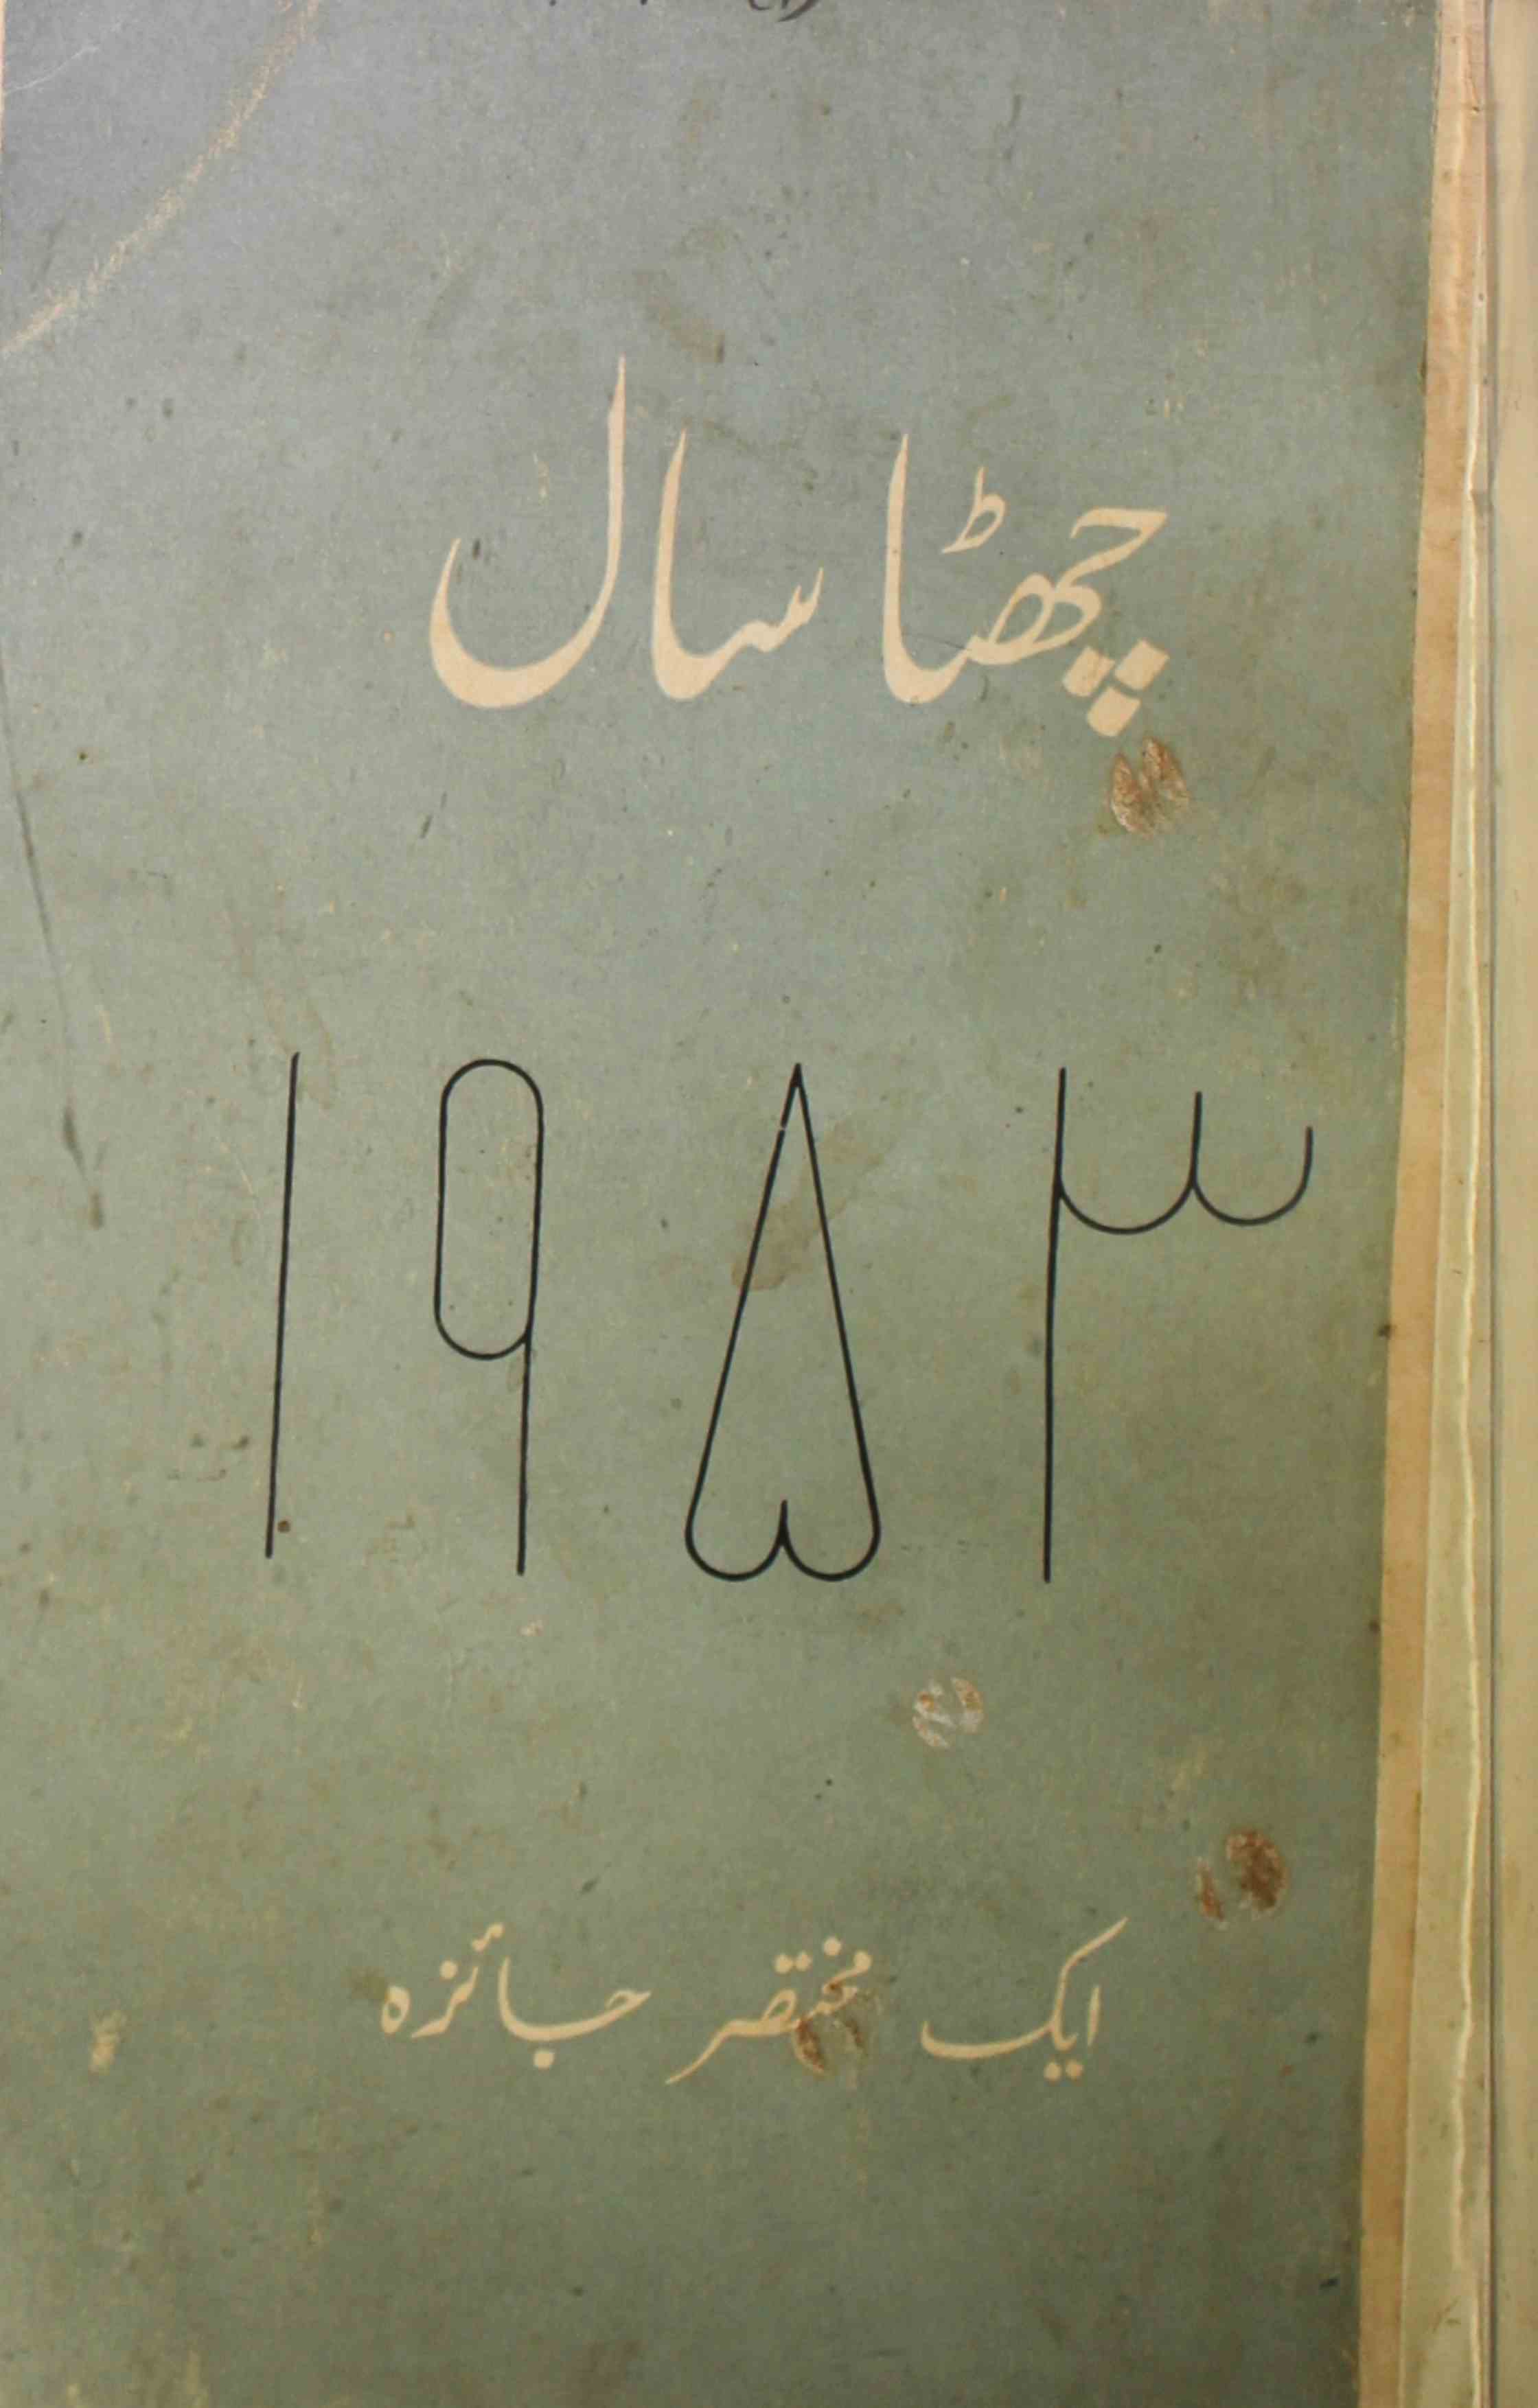 چھٹا سال
۱۹۵۳
ایک مختصر جائزہ